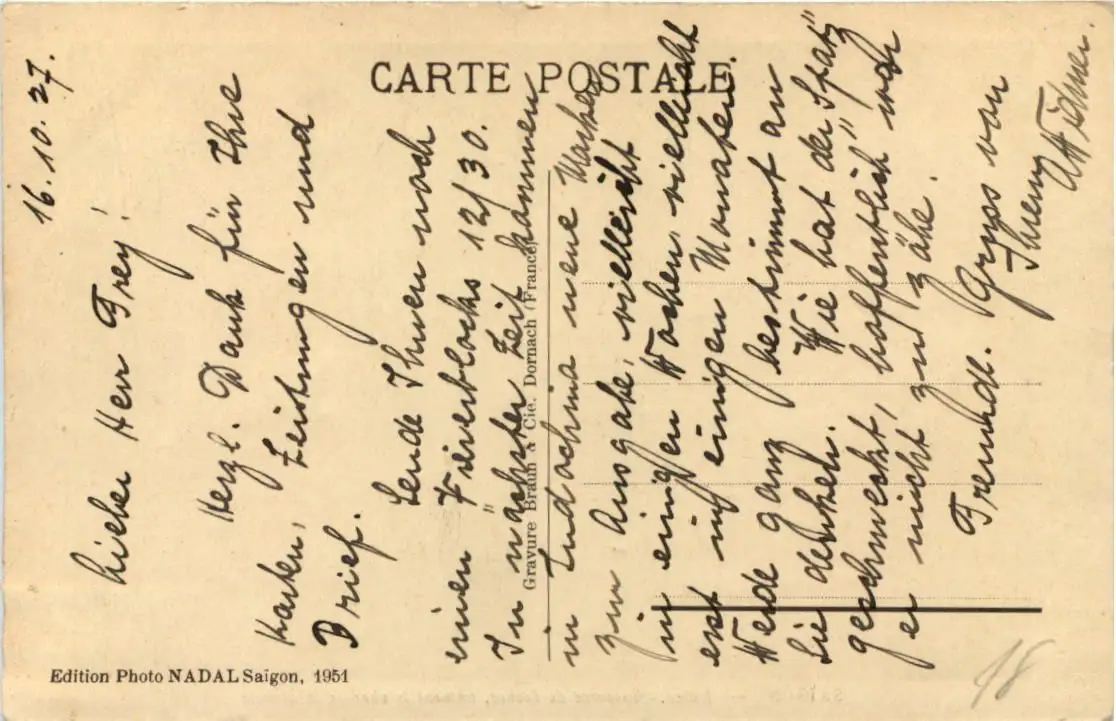 CARTE POSTALE
16.10.27.
Lieber Herr Frey!
Herzl. Dank für Ihre
Karten, Zeitungen und
Brief.
Sende Ihnen noch
einen Viererblocks 12/30.
In nächster Zeit kommen
in Indochina neue Marken
zur Ausgabe, vielleicht
in einigen Wochen, vielleicht
erst in einigen Monaten.
Werde ganz bestimmt an
Sie denken. Wie hat der "Spatz"
geschmeckt, hoffentlich war
er nicht zu zähe.
Freundl. Gruss von
Ihrem
Widmer.
Gravure Braun & Cie, Dornach (France)
Edition Photo NADAL Saïgon, 1951
18